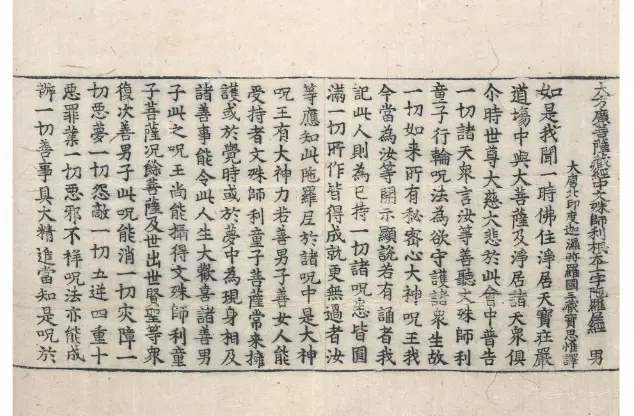 大方廣菩薩藏經中文殊師利根本一字陁羅尼經　男
大唐北印度迦濕蜜羅國三藏寶思惟譯
如是我聞一時佛住淨居天寶莊嚴
道場中與大菩薩及淨居諸天衆俱
尒時世尊大慈大悲於此會中普告
一切諸天衆言汝等善聽文殊師利
童子行輪呪法為欲守護諸衆生故
一切如來所有秘密心大神呪王我
今當為汝等開示顯説若有誦者我
記此人則為已持一切諸呪悉皆圓
滿一切所作皆得成就更無過者汝
等應知此陁羅尼於諸呪中是大神
呪王有大神力若善男子善女人能
受持者文殊師利童子菩薩常來擁
護或於覺時或於夢中為現身相及
諸善事能令此人生大歡喜諸善男
子此之呪王尚能攝得文殊師利童
子菩薩况餘菩薩及世出世賢聖等衆
復次善男子此呪能消一切灾障一
切惡夢一切怨敵一切五逆四重十
惡罪業一切惡邪不祥呪法亦能成
辦一切善事具大精進當知是呪於